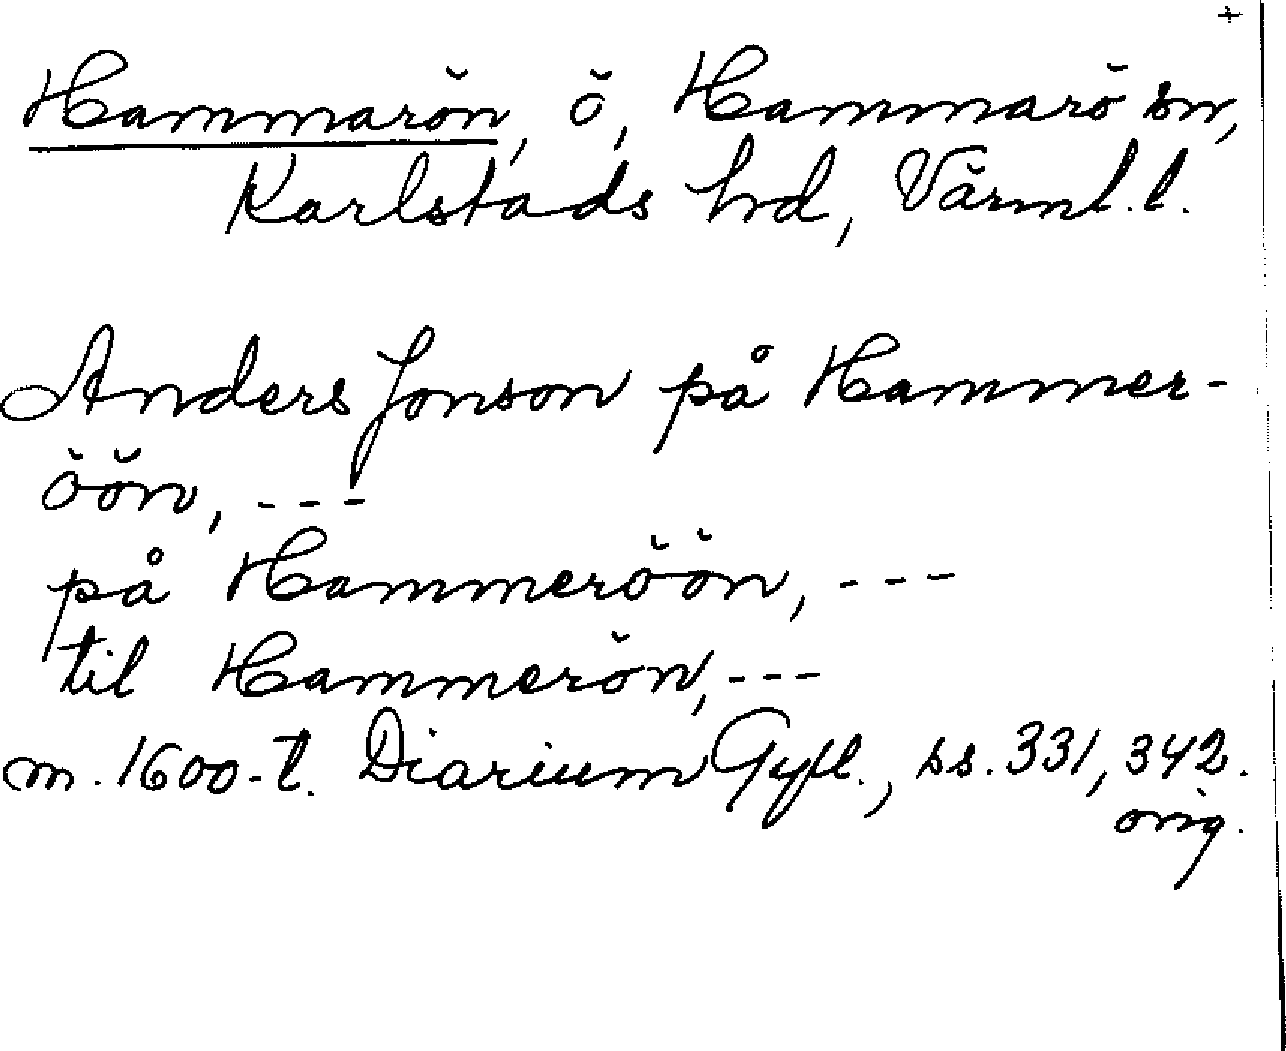 +
Hammarön, ö, Hammarö sn,
Karlstads hd, Värml. l.
Anders Jonson på Hammer-
öön, ---
på Hammeröön, ---
til Hammerön, ---
m. 1600-t. Diarium Gyll., ss. 331, 342.
orig.